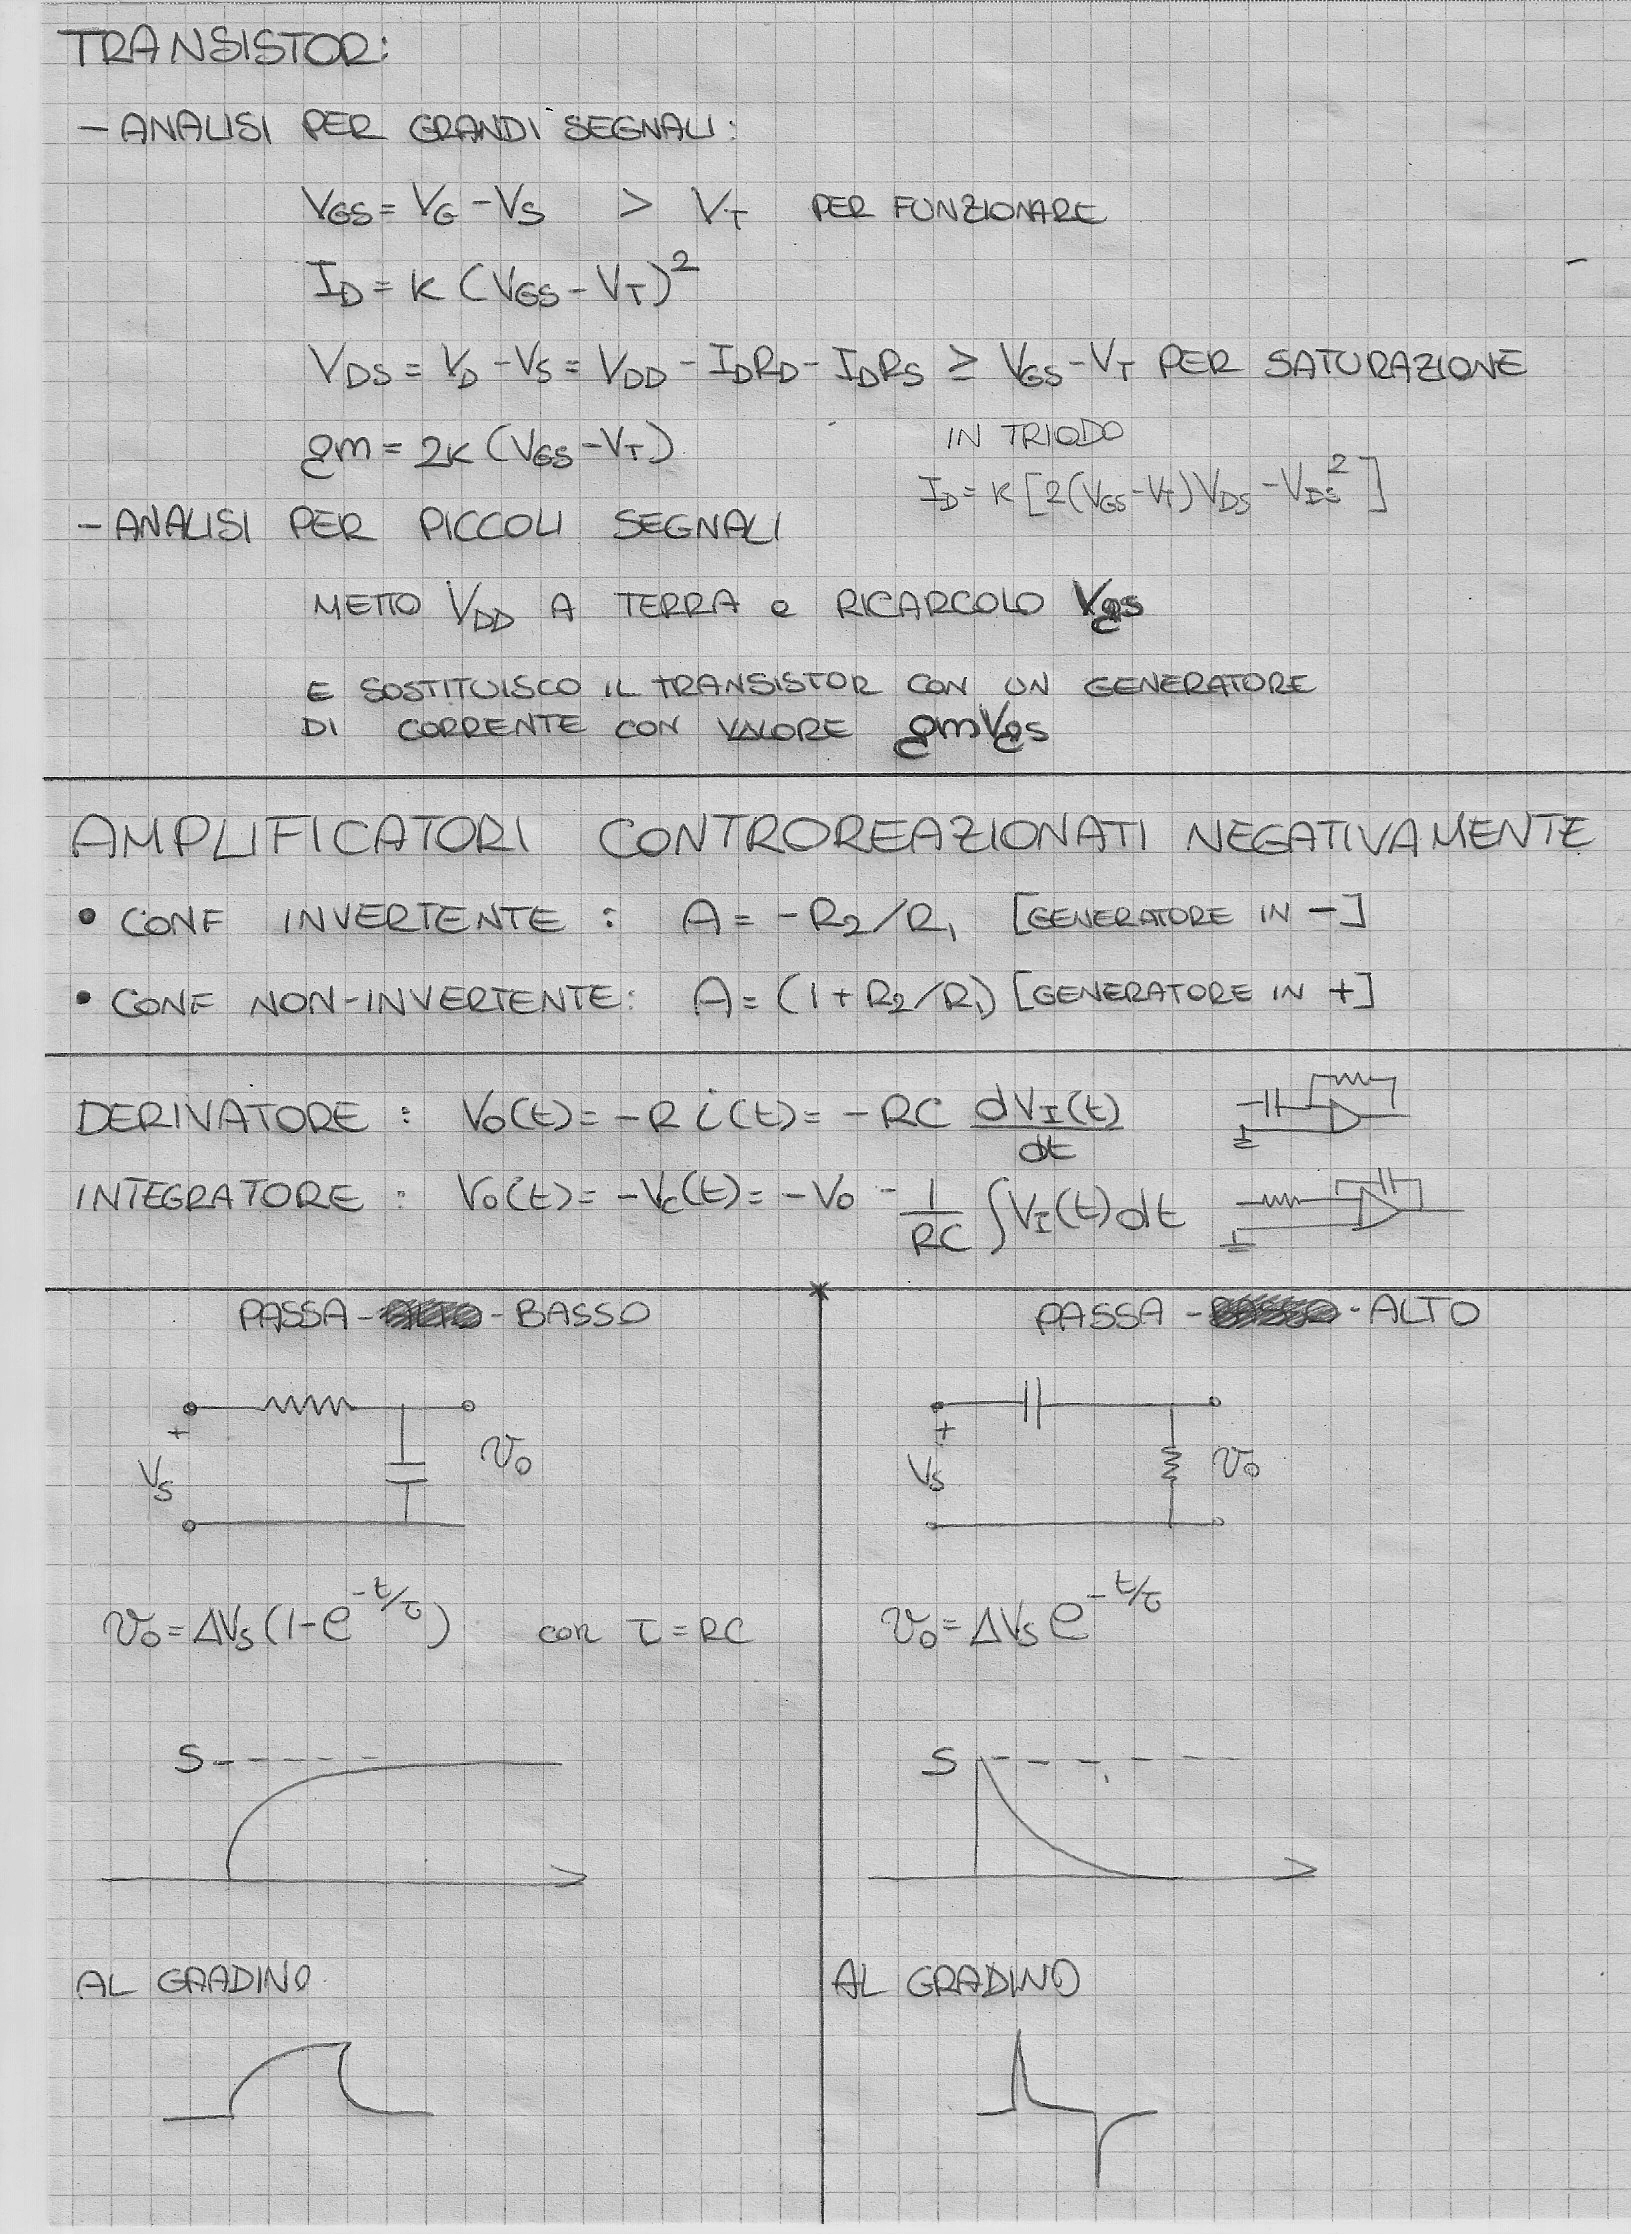 TRANSISTOR:
- ANALISI PER GRANDI SEGNALI:
VGS = VG - VS > VT PER FUNZIONARE
ID = K (VGS - VT)²
VDS = VD - VS = VDD - IDRD - IDRS ≥ VGS - VT PER SATURAZIONE
gm = 2K (VGS - VT)
IN TRIODO
ID = K [2(VGS - VT) VDS - VDS²]
- ANALISI PER PICCOLI SEGNALI
METTO VDD A TERRA e RICARCOLO Vgs
E SOSTITUISCO IL TRANSISTOR CON UN GENERATORE
DI CORRENTE CON VALORE gmVgs
AMPLIFICATORI CONTROREAZIONATI NEGATIVAMENTE
• CONF INVERTENTE : A = -R2/R1 [GENERATORE IN -]
• CONF NON-INVERTENTE: A = (1 + R2/R1) [GENERATORE IN +]
DERIVATORE : Vo(t) = -R i(t) = -RC dVI(t)/dt
INTEGRATORE : Vo(t) = -Vc(t) = -Vo - 1/RC ∫VI(t)dt
PASSA - - BASSO
+
VS
vo
vo = ΔVs (1 - e^-t/τ) con τ = RC
S
AL GRADINO
PASSA - - ALTO
+
VS
vo
vo = ΔVs e^-t/τ
S
AL GRADINO